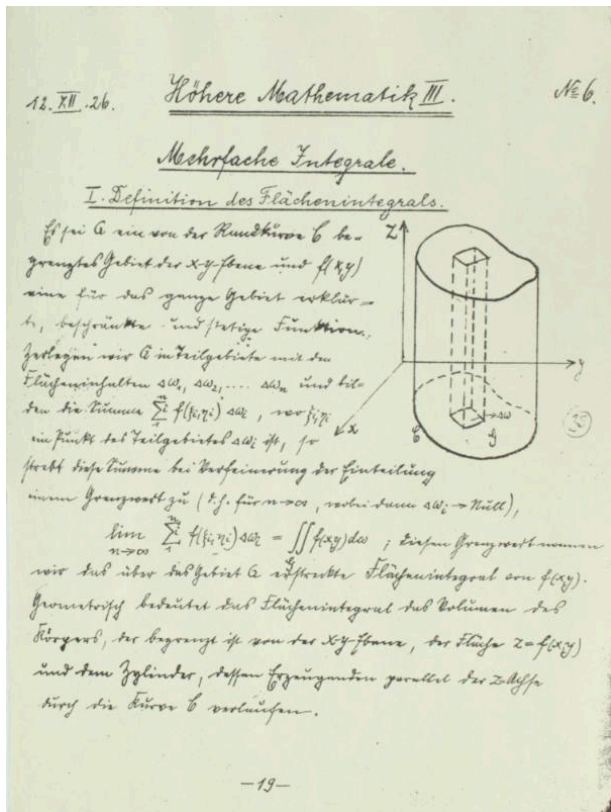 12. XII. 26. Höhere Mathematik III. No 6.
Mehrfache Integrale.
I. Definition des Flächenintegrals.
Es sei G ein von der Randkurve C be-
grenztes Gebiet der x-y-Ebene und f(x,y)
eine für das ganze Gebiet erklär-
te, beschränkte und stetige Funktion.
Zerlegen wir G in Teilgebiete mit den
Flächeninhalten Δω₁, Δω₂, .... Δωₙ und bil-
den die Summe ∑₁ⁿ f(ξᵢ,ηᵢ) Δωᵢ, wo ξᵢ,ηᵢ
ein Punkt des Teilgebietes Δωᵢ ist, so
strebt diese Summe bei Verfeinerung der Einteilung
einem Grenzwert zu (d.h. für n→∞, wobei dann Δωᵢ → Null),
lim n→∞ ∑₁ⁿ f(ξᵢ,ηᵢ) Δωᵢ = ∬ f(xy)dω ; diesen Grenzwert nennen
wir das über das Gebiet G erstreckte Flächenintegral von f(xy).
Geometrisch bedeutet das Flächenintegral das Volumen des
Körpers, der begrenzt ist von der x-y-Ebene, der Fläche z=f(x,y)
und dem Zylinder, dessen Erzeugenden parallel der z-Achse
durch die Kurve C verlaufen.
z
y
x
C
G
Δω
—19—